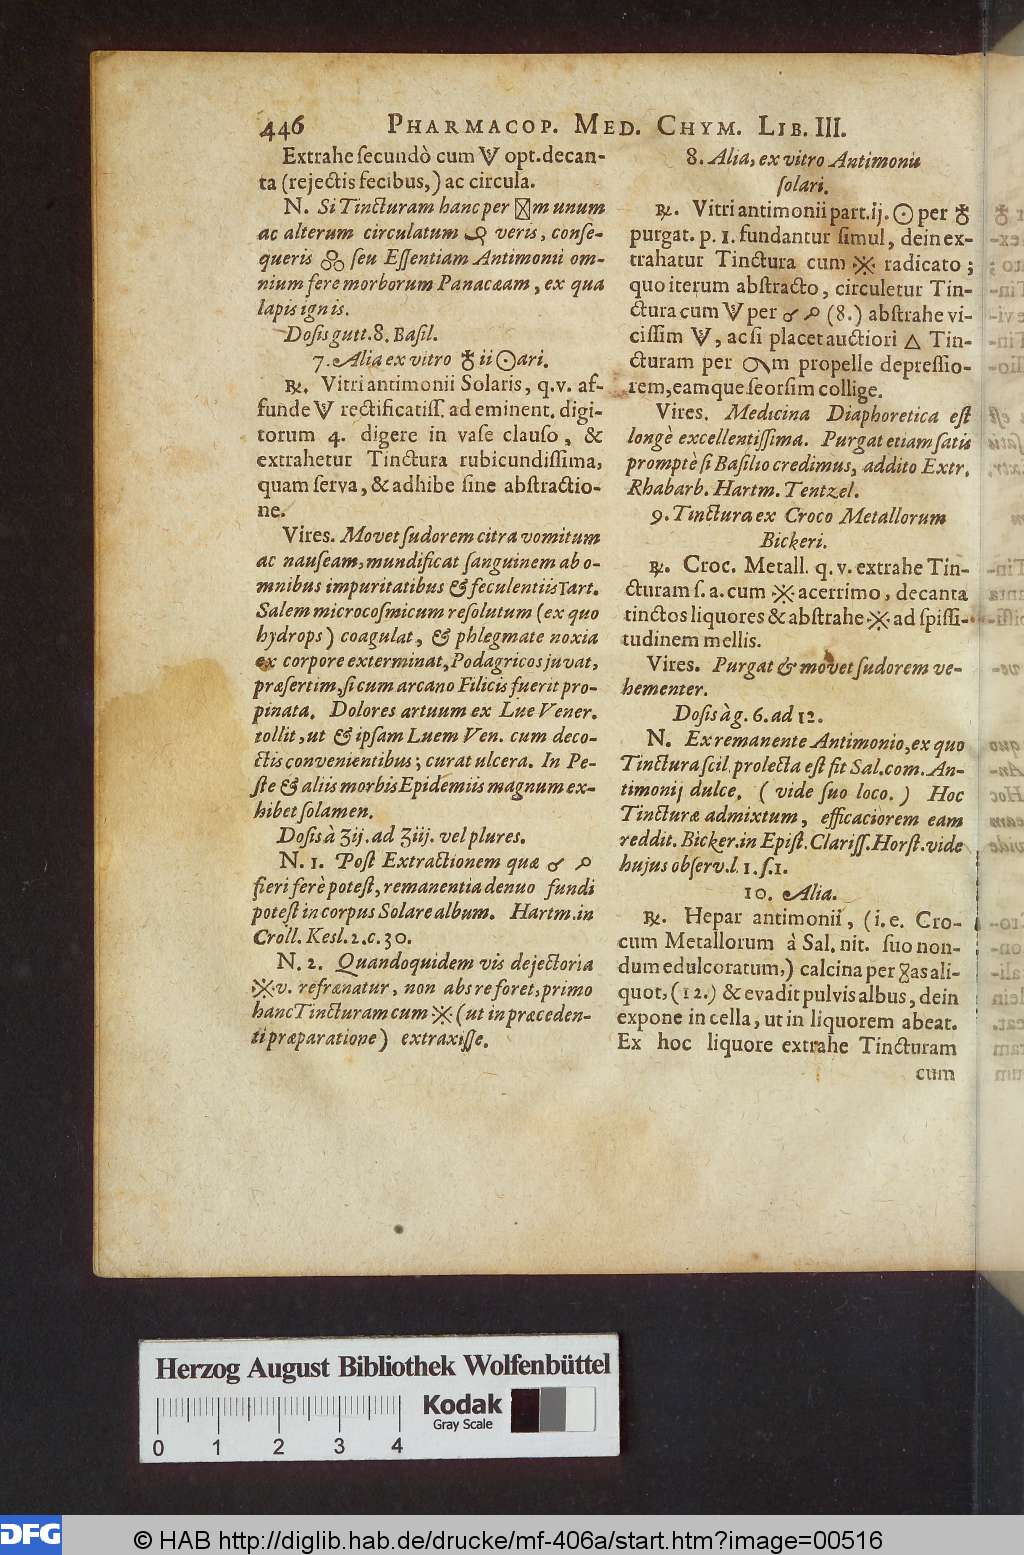 446 PHARMACOP. MED. CHYM. LIB. III.
Extrahe ſecundò cum opt. decan-
ta (rejectis fecibus,) ac circula.
N. Si Tincturam hanc per m unum
ac alterum circulatum veris, conſe-
queris ſeu Eſſentiam Antimonii om-
nium fere morborum Panacæam, ex qua
lapis ignis.
Doſis gutt. 8. Baſil.
7. Alia ex vitro ♁ii ☉ari.
℞. Vitri antimonii Solaris, q. v. af-
funde rectificatiſſ. ad eminent. digi-
torum 4. digere in vaſe clauſo, &
extrahetur Tinctura rubicundiſſima,
quam ſerva, & adhibe ſine abſtractio-
ne.
Vires. Movet ſudorem citra vomitum
ac nauſeam, mundificat ſanguinem ab o-
mnibus impuritatibus & feculentiis Tart.
Salem microcoſmicum reſolutum (ex quo
hydrops) coagulat, & phlegmate noxia
ex corpore exterminat, Podagricos juvat,
præſertim, ſi cum arcano Filicis fuerit pro-
pinata. Dolores artuum ex Lue Vener.
tollit, ut & ipſam Luem Ven. cum deco-
ctis convenientibus; curat ulcera. In Pe-
ſte & aliis morbis Epidemiis magnum ex-
hibet ſolamen.
Doſis à ʒij. ad ʒiij. vel plures.
N. 1. Poſt Extractionem quæ
fieri ferè poteſt, remanentia denuo fundi
poteſt in corpus Solare album. Hartm. in
Croll. Kesl. 2. c. 30.
N. 2. Quandoquidem vis dejectoria
v. refrænatur, non abs re foret, primo
hanc Tincturam cum (ut in præceden-
ti præparatione) extraxiſſe.
8. Alia, ex vitro Antimonii
ſolari.
℞. Vitri antimonii part. ij. ☉ per ♁
purgat. p. 1. fundantur ſimul, dein ex-
trahatur Tinctura cum radicato;
quo iterum abſtracto, circuletur Tin-
ctura cum per (8.) abſtrahe vi-
ciſſim , ac ſi placet auctiori △ Tin-
cturam per m propelle depreſſio-
rem, eamque ſeorſim collige.
Vires. Medicina Diaphoretica eſt
longè excellentiſſima. Purgat etiam ſatis
promptè ſi Baſilio credimus, addito Extr.
Rhabarb. Hartm. Tentzel.
9. Tinctura ex Croco Metallorum
Bickeri.
℞. Croc. Metall. q. v. extrahe Tin-
cturam ſ. a. cum acerrimo, decanta
tinctos liquores & abſtrahe ad ſpiſſi-
tudinem mellis.
Vires. Purgat & movet ſudorem ve-
hementer.
Doſis à g. 6. ad 12.
N. Ex remanente Antimonio, ex quo
Tinctura ſcil. prolecta eſt fit Sal. com. An-
timonij dulce. (vide ſuo loco.) Hoc
Tincturæ admixtum, efficaciorem eam
reddit. Bicker. in Epiſt. Clariſſ. Horſt. vide
hujus obſerv. l. 1. ſ. 1.
10. Alia.
℞. Hepar antimonii, (i. e. Cro-
cum Metallorum à Sal. nit. ſuo non-
dum edulcoratum,) calcina per as ali-
quot, (12.) & evadit pulvis albus, dein
expone in cella, ut in liquorem abeat.
Ex hoc liquore extrahe Tincturam
cum
Herzog August Bibliothek Wolfenbüttel
Kodak
Gray Scale
0 1 2 3 4
DFG © HAB http://diglib.hab.de/drucke/mf-406a/start.htm?image=00516